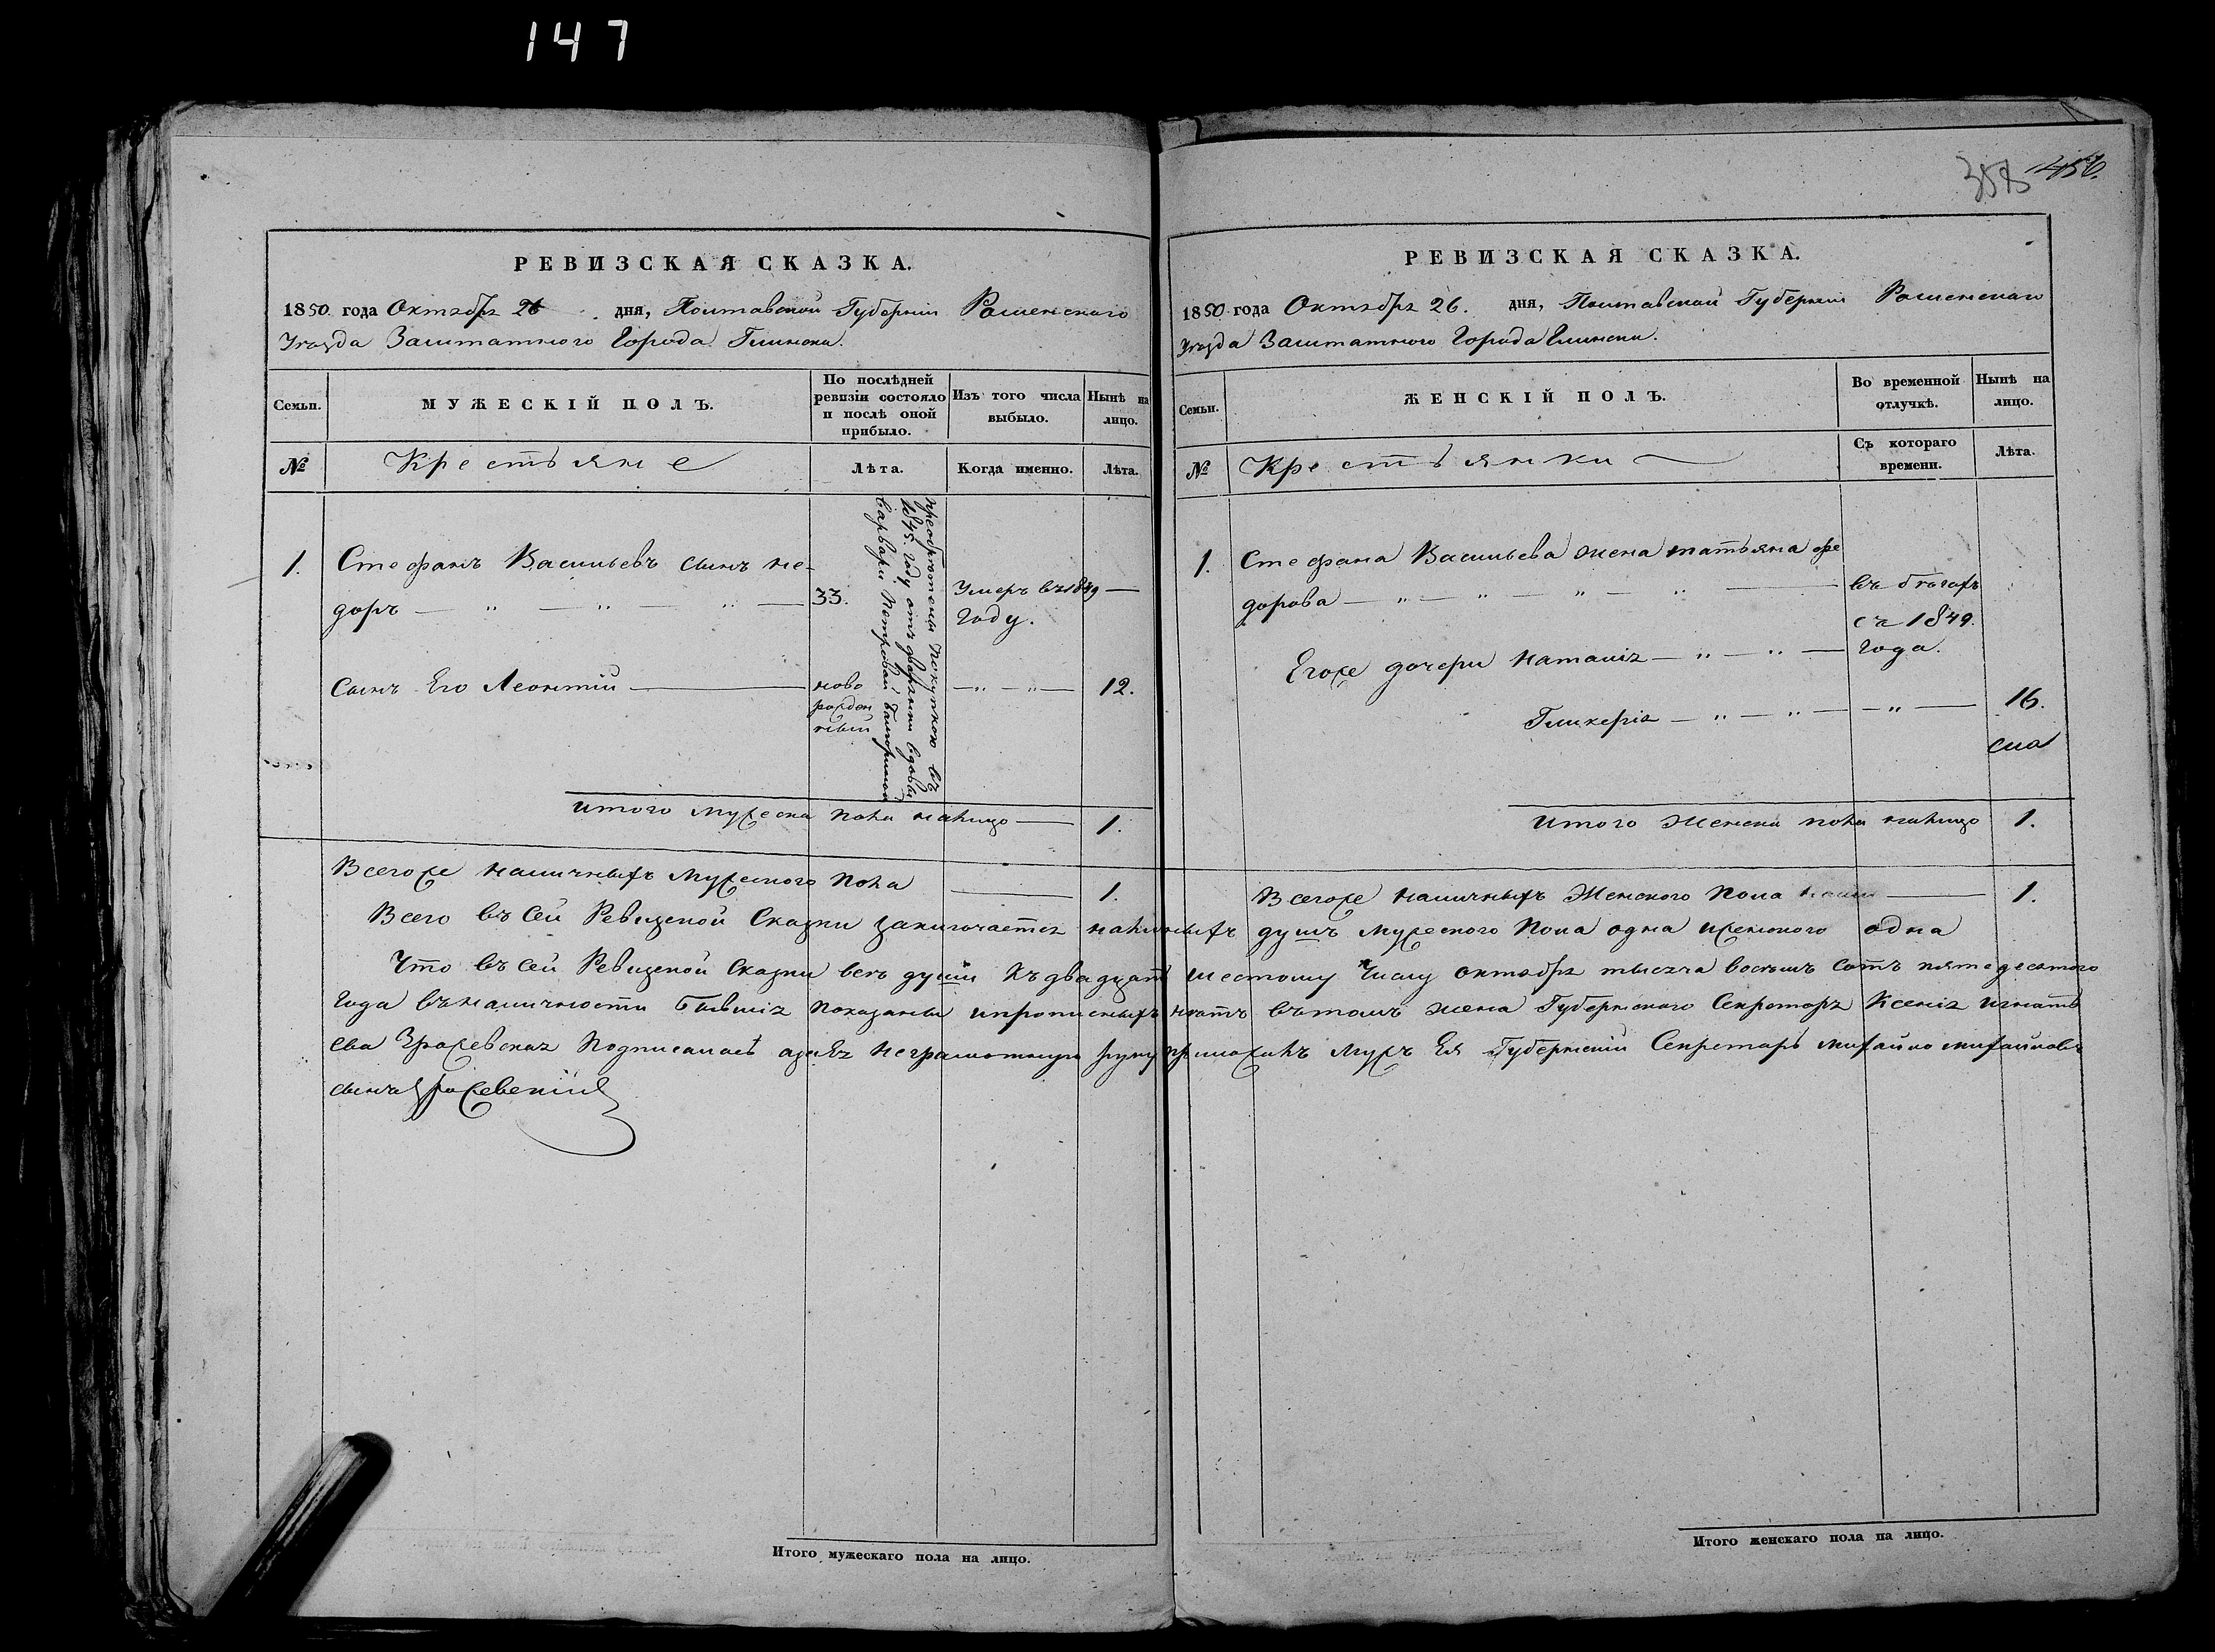 147
358 456.
РЕВИЗСКАЯ СКАЗКА.
1850 года Октября 26 дня, Полтавской Губернии Роменского
Уезда Заштатного Города Глинска.
Семьи.
МУЖЕСКІЙ ПОЛЪ.
По послѣдней ревизіи состояло и послѣ оной прибыло.
Изъ того числа выбыло.
Нынѣ на лицо.
№
Крестьяне
Лѣта.
Когда именно.
Лѣта.
1.
Стефанъ Васильевъ сынъ Не-
доръ
33.
Умеръ въ 1849
году.
Сынъ Его Леонтій
ново
рожден
ный
12.
преобретены покупкою въ
1845. году отъ дворянки вдовы
Варвары Петровой
итого мужеска пола налицо 1.
Всегоже наличныхъ мужеского пола 1.
РЕВИЗСКАЯ СКАЗКА.
1850 года Октября 26. дня, Полтавской Губернии Роменскаго
Уезда Заштатного Города Глинска.
Семьи.
ЖЕНСКІЙ ПОЛЪ.
Во временной отлучкѣ.
Нынѣ на лицо.
№
Крестьянки
Съ котораго времени.
Лѣта.
1.
Стефана Васильева жена татьяна фе
дорова
въ бегахъ
съ 1849.
года.
Егоже дочери Наталія
Гликерія
16.
итого Женска пола налицо 1.
Всегоже наличныхъ Женского пола 1.
Всего въ сей Ревизской Сказки заключается наличныхъ душъ мужеского пола одна иженского одна
Что въ сей Ревизской Сказки всѣ души къ двадцать шестому числу октября тысяча восемь сотъ пятедесятого
года въ наличности бывшія показаны ипрописныхъ нѣтъ вътомъ жена Губернского Секретаря Ксенія игнать
ева Подписалась азаЕя неграмотную руку приложилъ мужъ Ея Губернский Секретарь михайло михайловъ
сынъ
Итого мужескаго пола на лицо.
Итого женскаго пола на лицо.